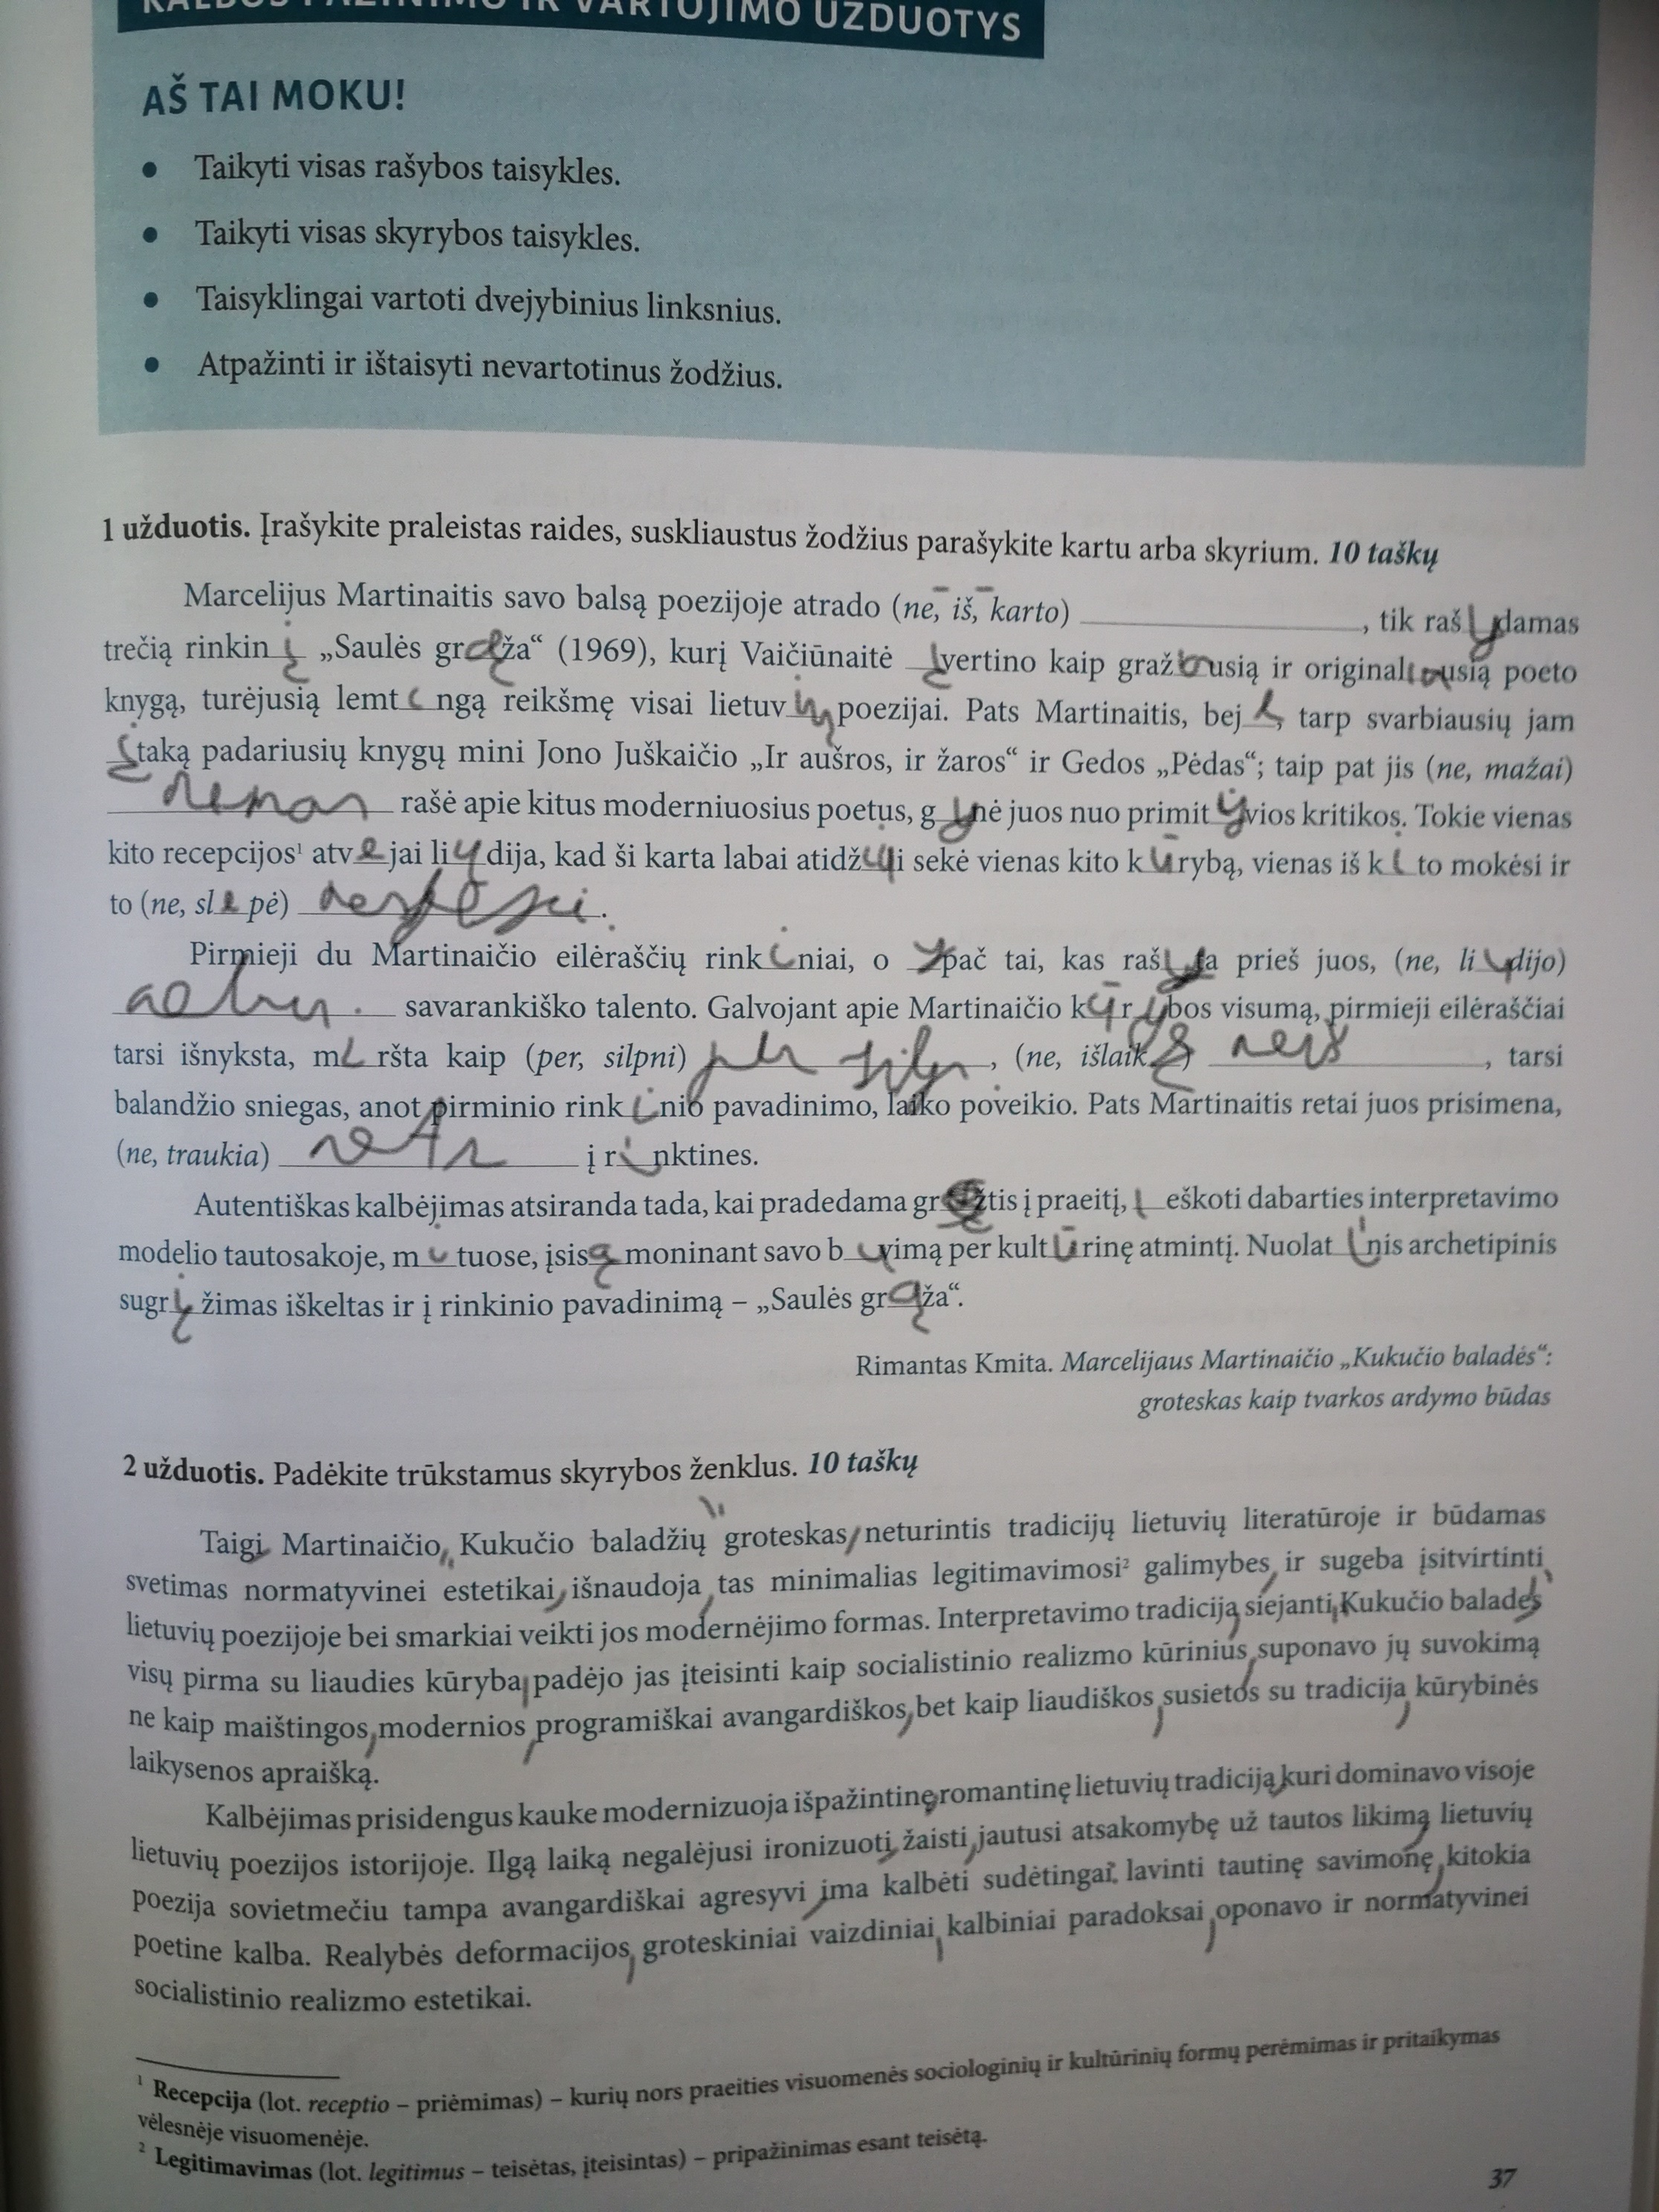 KALBOS PAŽINIMO IR VARTOJIMO UŽDUOTYS
AŠ TAI MOKU!
• Taikyti visas rašybos taisykles.
• Taikyti visas skyrybos taisykles.
• Taisyklingai vartoti dvejybinius linksnius.
• Atpažinti ir ištaisyti nevartotinus žodžius.
1 užduotis. Įrašykite praleistas raides, suskliaustus žodžius parašykite kartu arba skyrium. 10 taškų
Marcelijus Martinaitis savo balsą poezijoje atrado (ne, iš, karto) ____, tik rašydamas
trečią rinkinį „Saulės grąža“ (1969), kurį Vaičiūnaitė įvertino kaip gražiausią ir originaliausią poeto
knygą, turėjusią lemtingą reikšmę visai lietuvių poezijai. Pats Martinaitis, beje, tarp svarbiausių jam
įtaką padariusių knygų mini Jono Juškaičio „Ir aušros, ir žaros“ ir Gedos „Pėdas“; taip pat jis (ne, mažai)
rašė apie kitus moderniuosius poetus, gynė juos nuo primityvios kritikos. Tokie vienas
kito recepcijos¹ atvejai liudija, kad ši karta labai atidžiai sekė vienas kito kūrybą, vienas iš kito mokėsi ir
to (ne, slepė) .
Pirmieji du Martinaičio eilėraščių rinkiniai, o ypač tai, kas rašyta prieš juos, (ne, liudijo)
savarankiško talento. Galvojant apie Martinaičio kūrybos visumą, pirmieji eilėraščiai
tarsi išnyksta, miršta kaip (per, silpni) per silpn, (ne, išlaikę) neiš, tarsi
balandžio sniegas, anot pirminio rinkinio pavadinimo, laiko poveikio. Pats Martinaitis retai juos prisimena,
(ne, traukia) netr į rinktines.
Autentiškas kalbėjimas atsiranda tada, kai pradedama gręžtis į praeitį, ieškoti dabarties interpretavimo
modelio tautosakoje, mituose, įsisąmoninant savo buvimą per kultūrinę atmintį. Nuolatinis archetipinis
sugrįžimas iškeltas ir į rinkinio pavadinimą – „Saulės grąža“.
Rimantas Kmita. Marcelijaus Martinaičio „Kukučio baladės“:
groteskas kaip tvarkos ardymo būdas
2 užduotis. Padėkite trūkstamus skyrybos ženklus. 10 taškų
Taigi, Martinaičio „Kukučio baladžių“ groteskas, neturintis tradicijų lietuvių literatūroje ir būdamas
svetimas normatyvinei estetikai, išnaudoja, tas minimalias legitimavimosi² galimybes, ir sugeba įsitvirtinti,
lietuvių poezijoje bei smarkiai veikti jos modernėjimo formas. Interpretavimo tradicija, siejanti, Kukučio balades,
visų pirma su liaudies kūryba, padėjo jas įteisinti kaip socialistinio realizmo kūrinius, suponavo jų suvokimą
ne kaip maištingos, modernios, programiškai avangardiškos, bet kaip liaudiškos, susietos su tradicija, kūrybinės
laikysenos apraišką.
Kalbėjimas prisidengus kauke modernizuoja išpažintinę, romantinę lietuvių tradiciją, kuri dominavo visoje
lietuvių poezijos istorijoje. Ilgą laiką negalėjusi ironizuoti, žaisti, jautusi atsakomybę už tautos likimą, lietuvių
poezija sovietmečiu tampa avangardiškai agresyvi, ima kalbėti sudėtingai, lavinti tautinę savimonę, kitokia
poetine kalba. Realybės deformacijos, groteskiniai vaizdiniai, kalbiniai paradoksai, oponavo ir normatyvinei
socialistinio realizmo estetikai.
¹ Recepcija (lot. receptio – priėmimas) – kurių nors praeities visuomenės sociologinių ir kultūrinių formų perėmimas ir pritaikymas
vėlesnėje visuomenėje.
² Legitimavimas (lot. legitimus – teisėtas, įteisintas) – pripažinimas esant teisėtą.
37